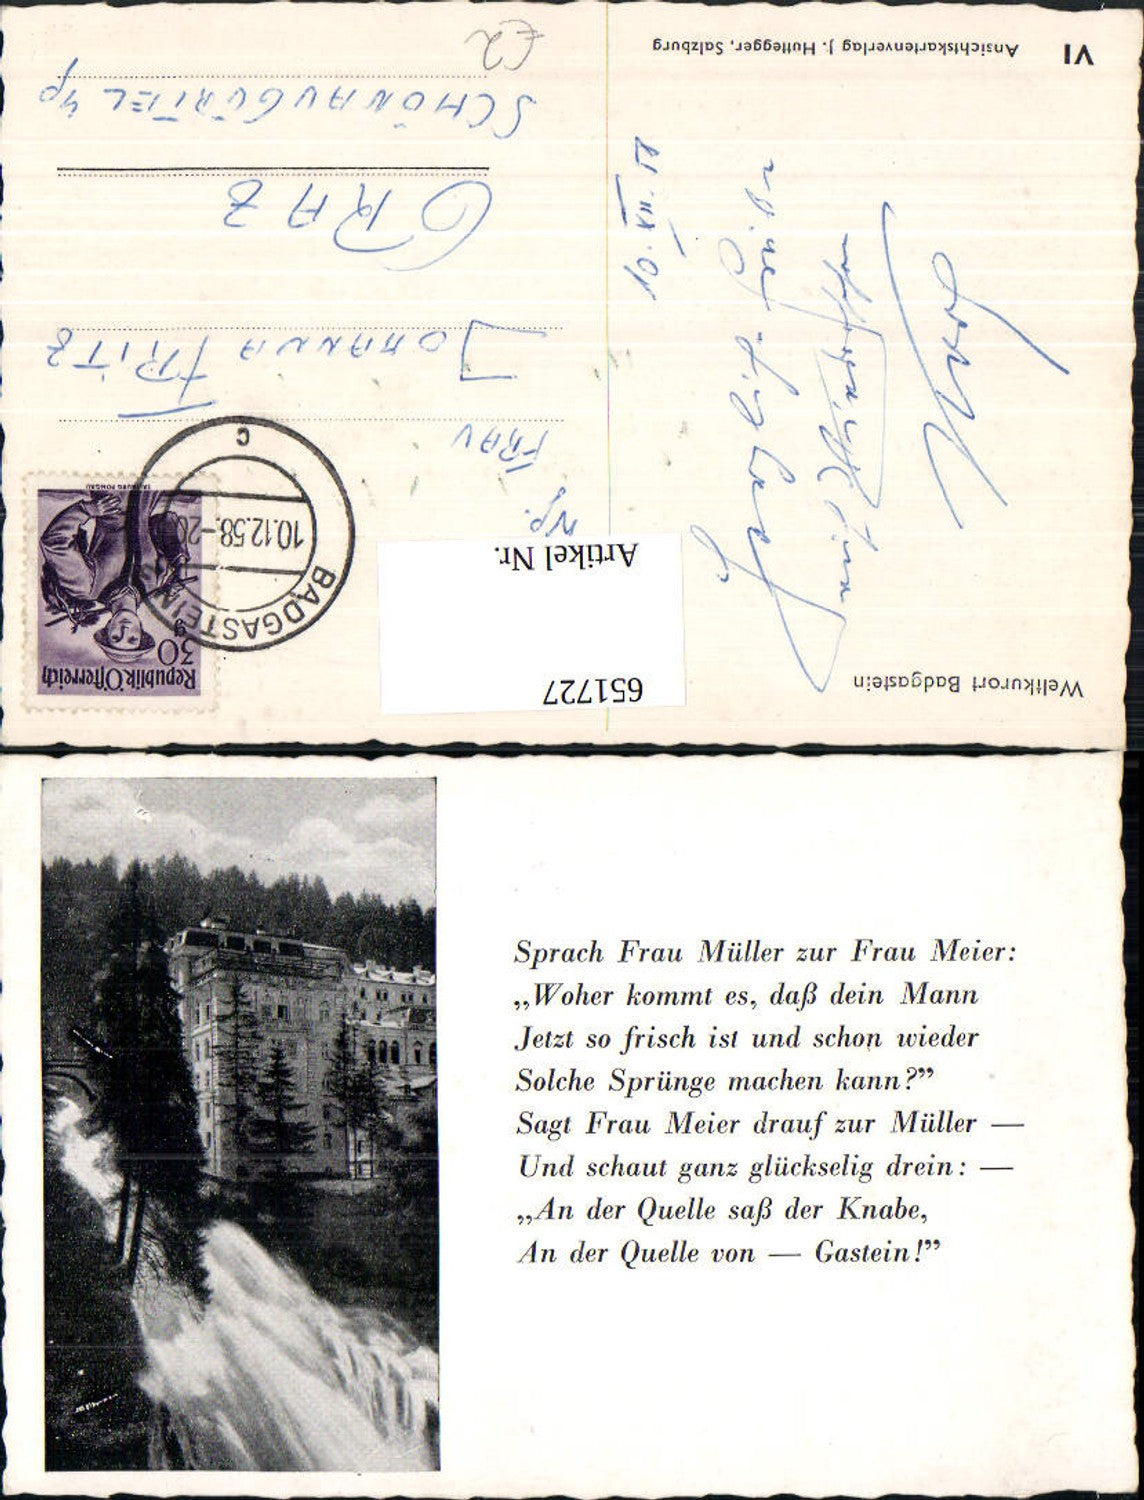 Weltkurort Badgastein
VI
Ansichtskartenverlag J. Huttegger, Salzburg
10. XII.
Republik Österreich
30
g
SALZBURG PONGAU
BADGASTEIN
10.12.58.-20
c
FRAU
JOHANNA FRITZ
GRAZ
SCHÖNAUGÜRTEL
£2
Artikel Nr.
651727
Sprach Frau Müller zur Frau Meier:
„Woher kommt es, daß dein Mann
Jetzt so frisch ist und schon wieder
Solche Sprünge machen kann?”
Sagt Frau Meier drauf zur Müller —
Und schaut ganz glückselig drein: —
„An der Quelle saß der Knabe,
An der Quelle von — Gastein!”